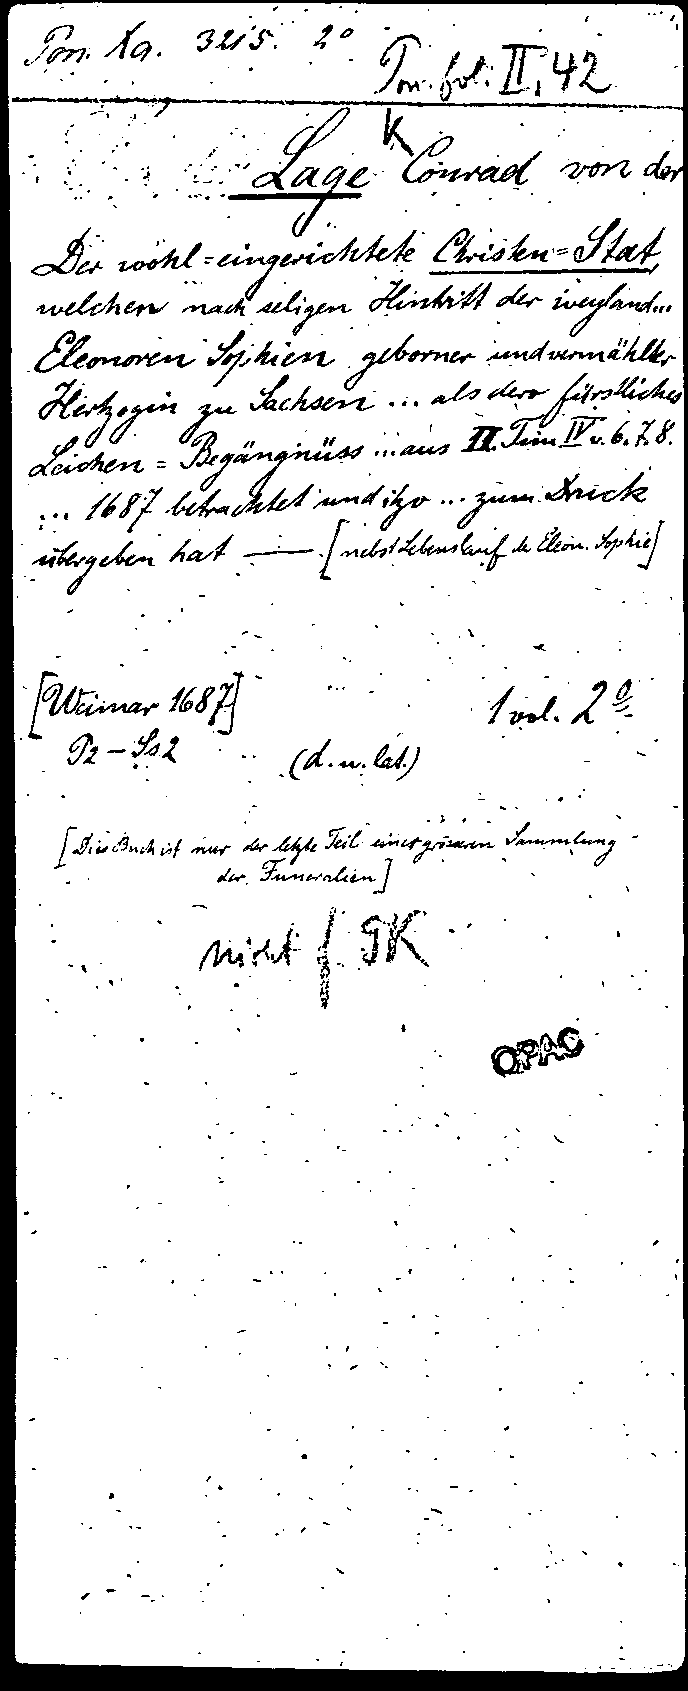 Pon. Xa. 3215. 2°
Pon. fol. II, 42
K
Lage Conrad von der
Der wohl=eingerichtete Christen=Stat,
welchen nach seligen Hintritt der weyland...
Eleonoren Sophien geborner und vermählter
Hertzogin zu Sachsen ... als dero fürstliches
Leichen=Begängnüss ... aus II. Tim IV v. 6. 7. 8.
... 1687 betrachtet und itzo ... zum Druck
übergeben hat — [nebst Lebenslauf der Eleon. Sophie]
[Weimar 1687] 1 vol. 2°
P2 – Ss2 (d. u. lat.)
[Dies Buch ist nur der letzte Teil einer grösseren Sammlung
der Funeralien]
nicht f. GK
OPAC